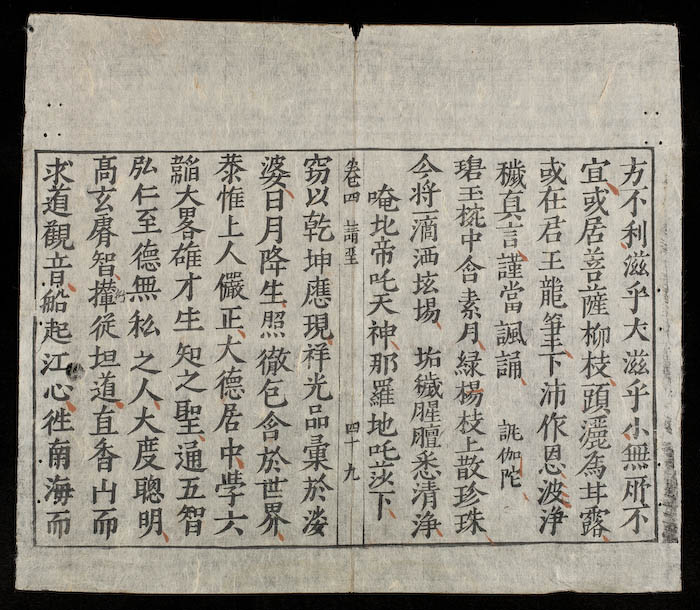 方不利滋乎大滋乎小無所不
宜或居菩薩柳枝頭灑為甘露
或在君王龍筆下沛作恩波淨
穢真言謹當諷誦　誐伽陀
珺玉椀中含素月綠楊枝上散珍珠
今将一滴洒坛場　垢穢腥膻悉清淨
唵地帝吒天神那羅地吒莎下
卷四　請聖　四十九
窃以乾坤應現祥光品彙於婆
婆日月降生照徹包含於世界
恭惟上人儼正大德居中學六
韜大畧雄才生知之聖通五智
弘仁至德無私之人大度聰明
高玄膚智㩲從坦道直香山而
求道觀音船起江心徃南海而